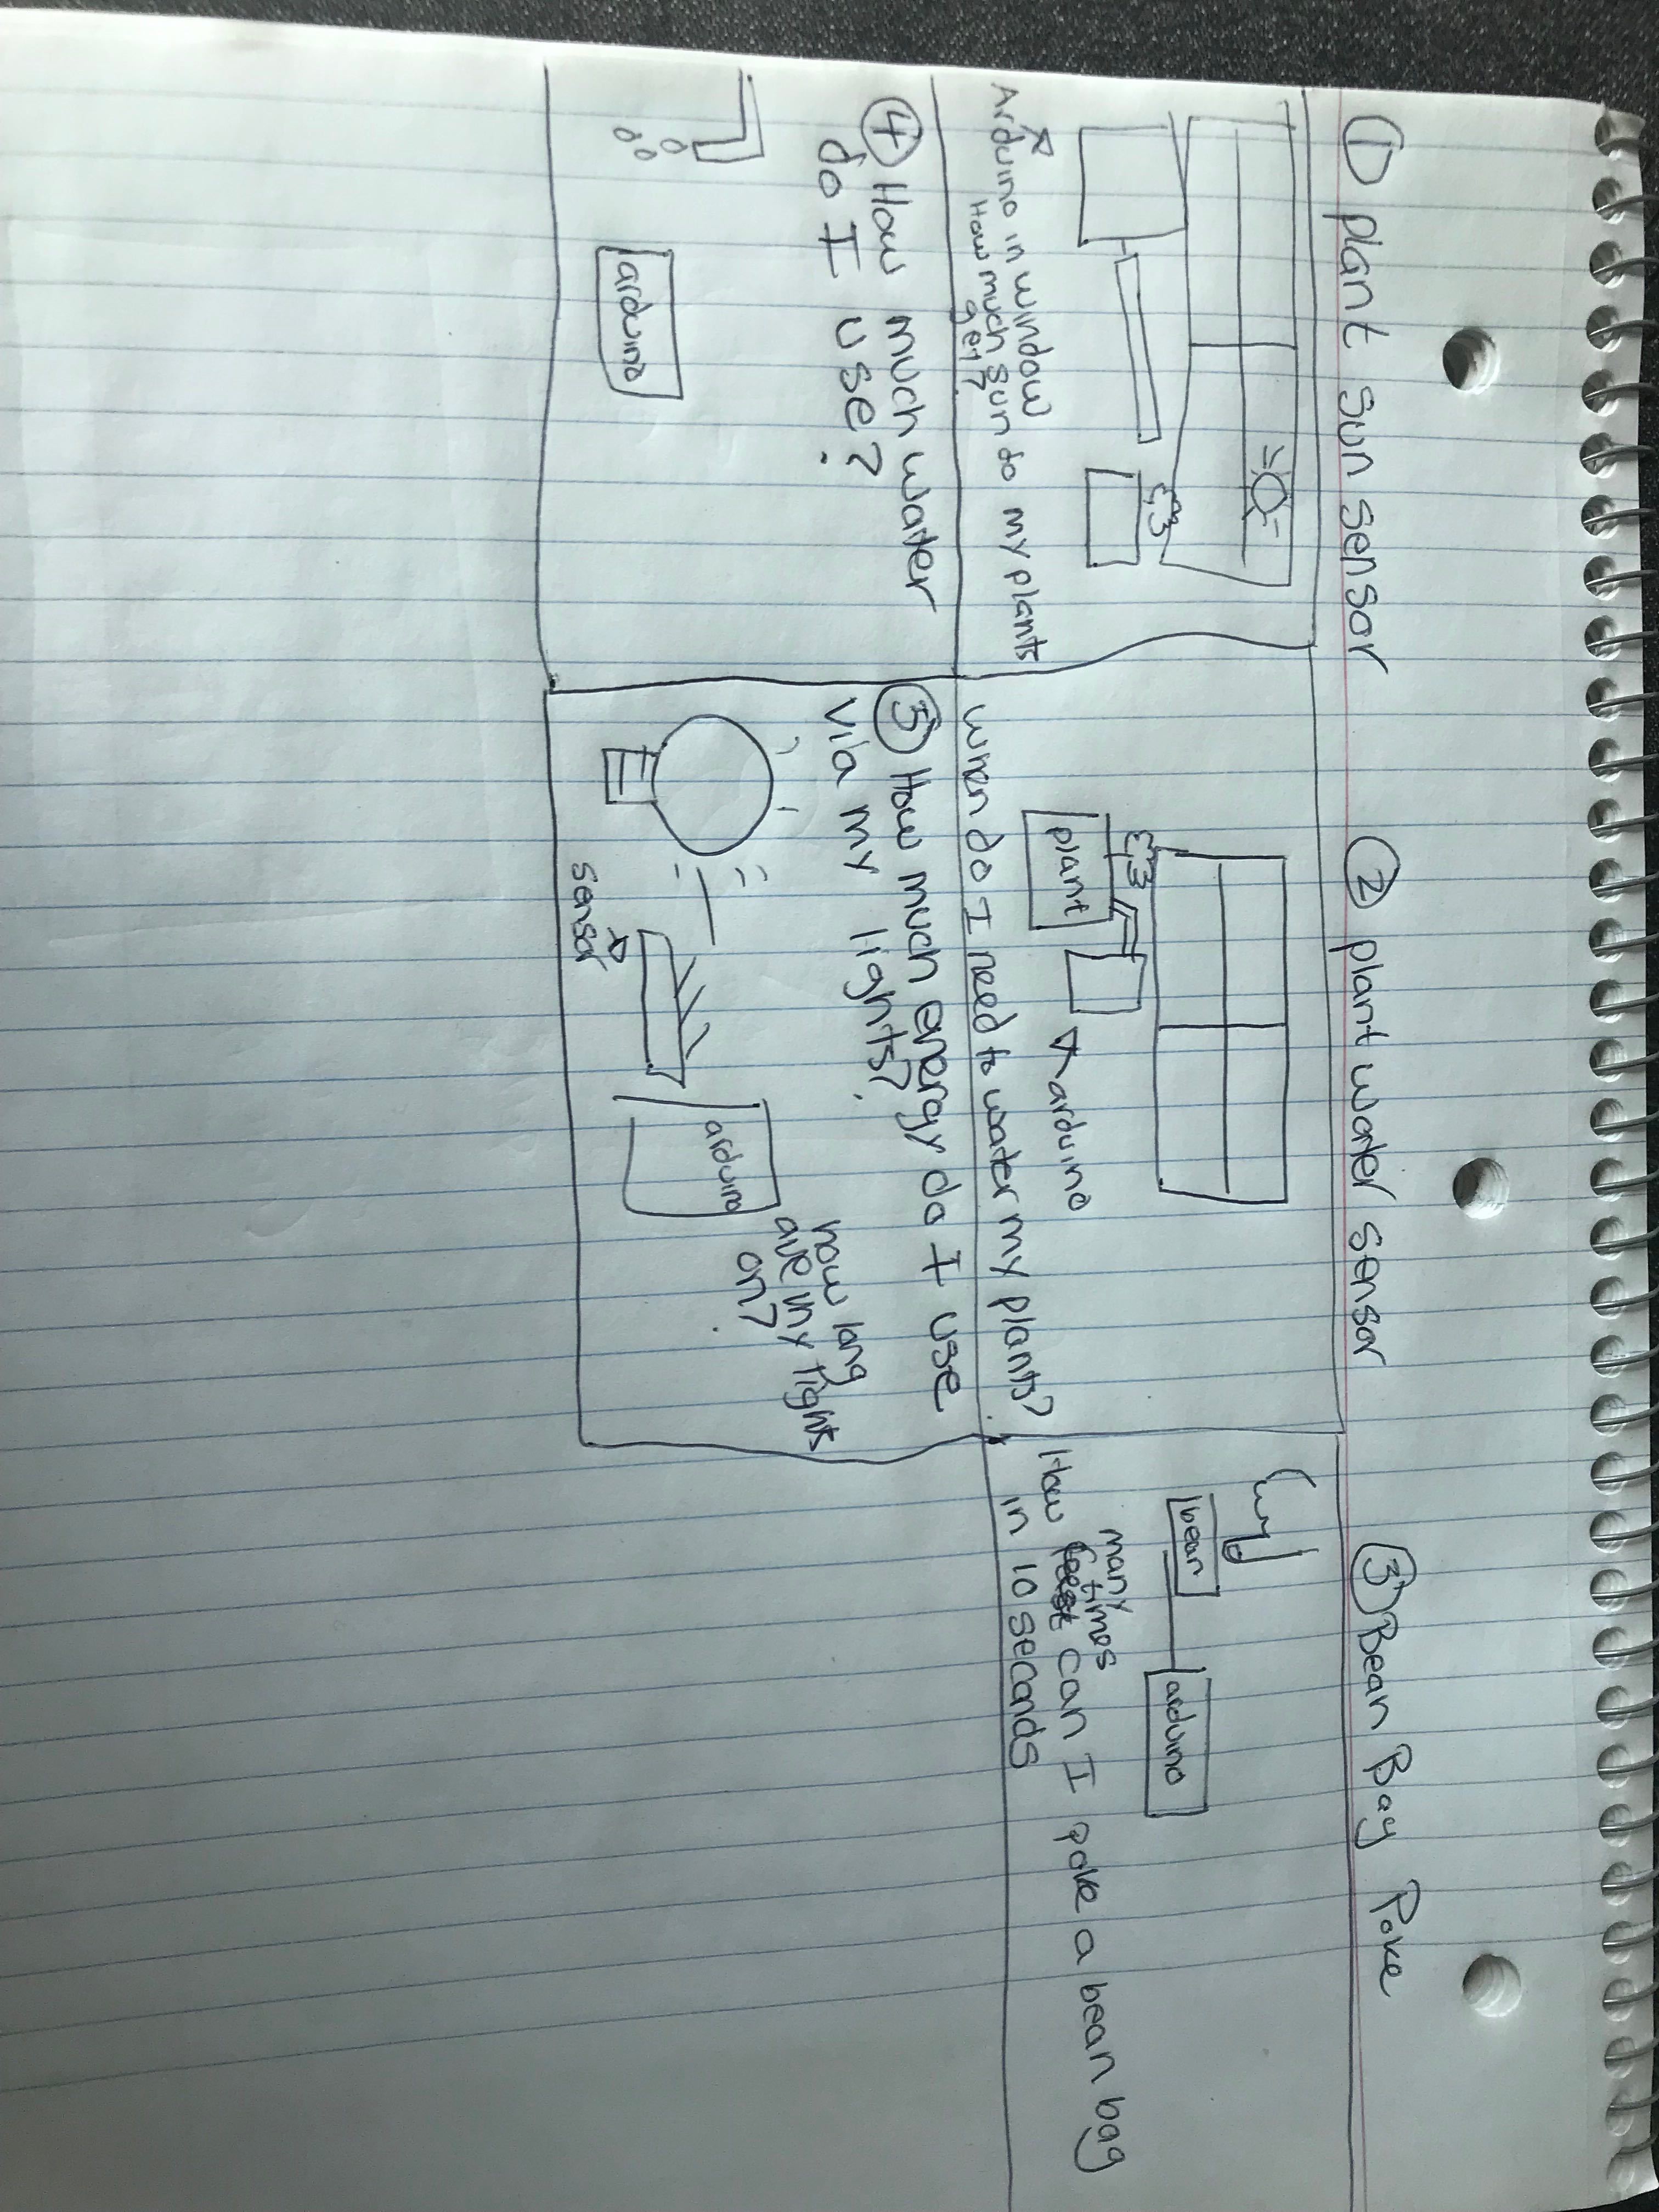 ① plant sun sensor
Arduino in window
How much sun do my plants
get?
② plant water sensor
plant
arduino
When do I need to water my plants?
③ Bean Bag Poke
bean
arduino
many
times
How can I poke a bean bag
in 10 seconds
④ How much water
do I use?
arduino
⑤ How much energy do I use
via my lights?
how long
are my lights
on?
arduino
sensor